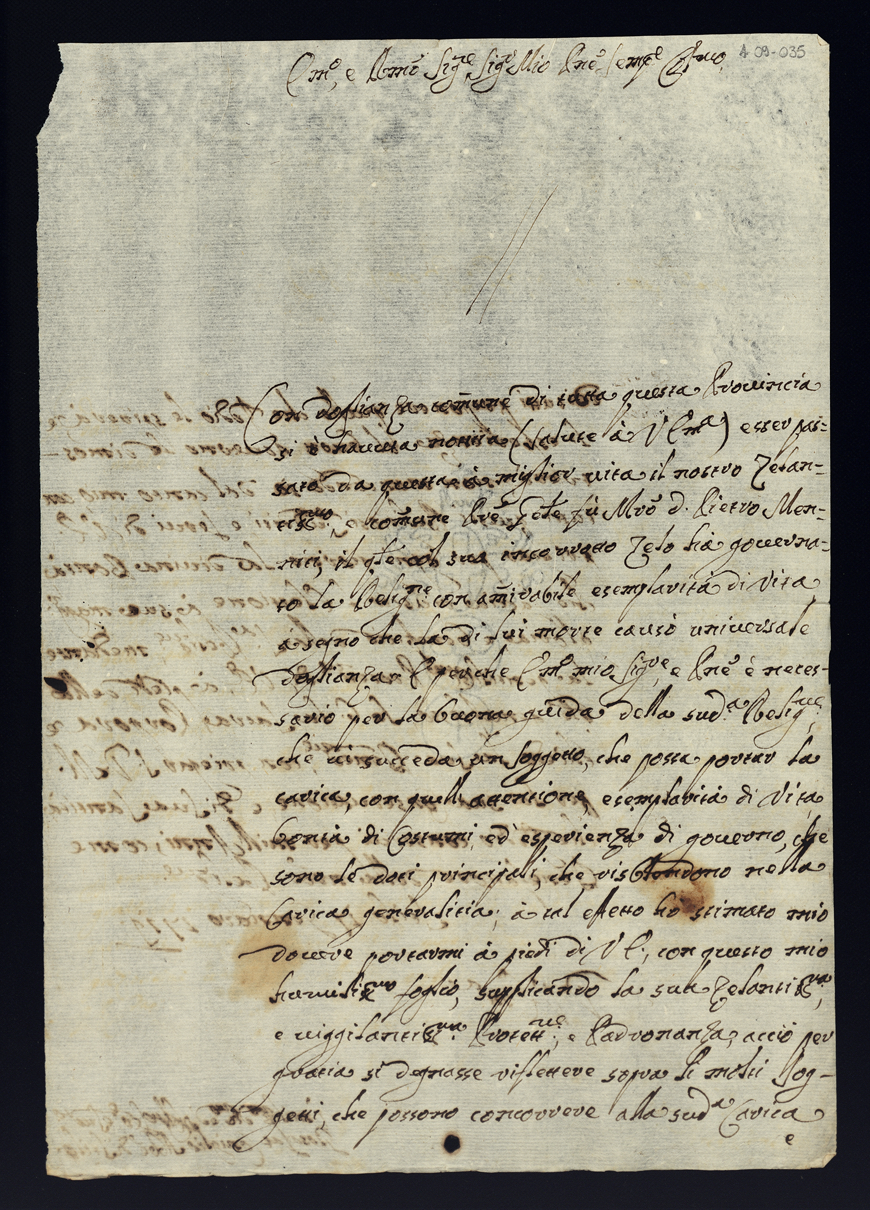 A 09-035
Em̃o, e Rmõ Sigre, Sigr Mio, Prẽ sempre Cõlmo
Con doglianza comune di tutta questa Provincia
si è havuta notitia (salute à V Emа) esser pas=
sato da questa à miglior vita il nostro Zelan=
tissmo, e comune Prẽ Gñle fù Mrõ d. Pietro Men=
nici, il qle col sua incorrotto Zelo hà governa=
to la Religne, con amirabile esemplarità di Vita
a segno che la di lui morte causò universale
doglianza. E perche Em̃o mio Sigre, e Prẽ è neces=
sario per la buona guida della sudа Religne,
che vi succeda un soggetto, che possa portar la
carica, con quell'attentione, esemplarità di Vita,
bontà di Costumi, ed' esperienza di governo, che
sono le doti principali, che risblendono nella
Carica generalitia; à tal effetto hò stimato mio
dovere portarmi à piedi di V E., con questo mio
humilissmo foglio, supplicando la sua Zelantissma,
e viggilantissma Protettne, e Padronanza, acciò per
gratia si degnasse riflettere sopra li molti Sog=
getti, che possono concorrere alla sudа Carica
e